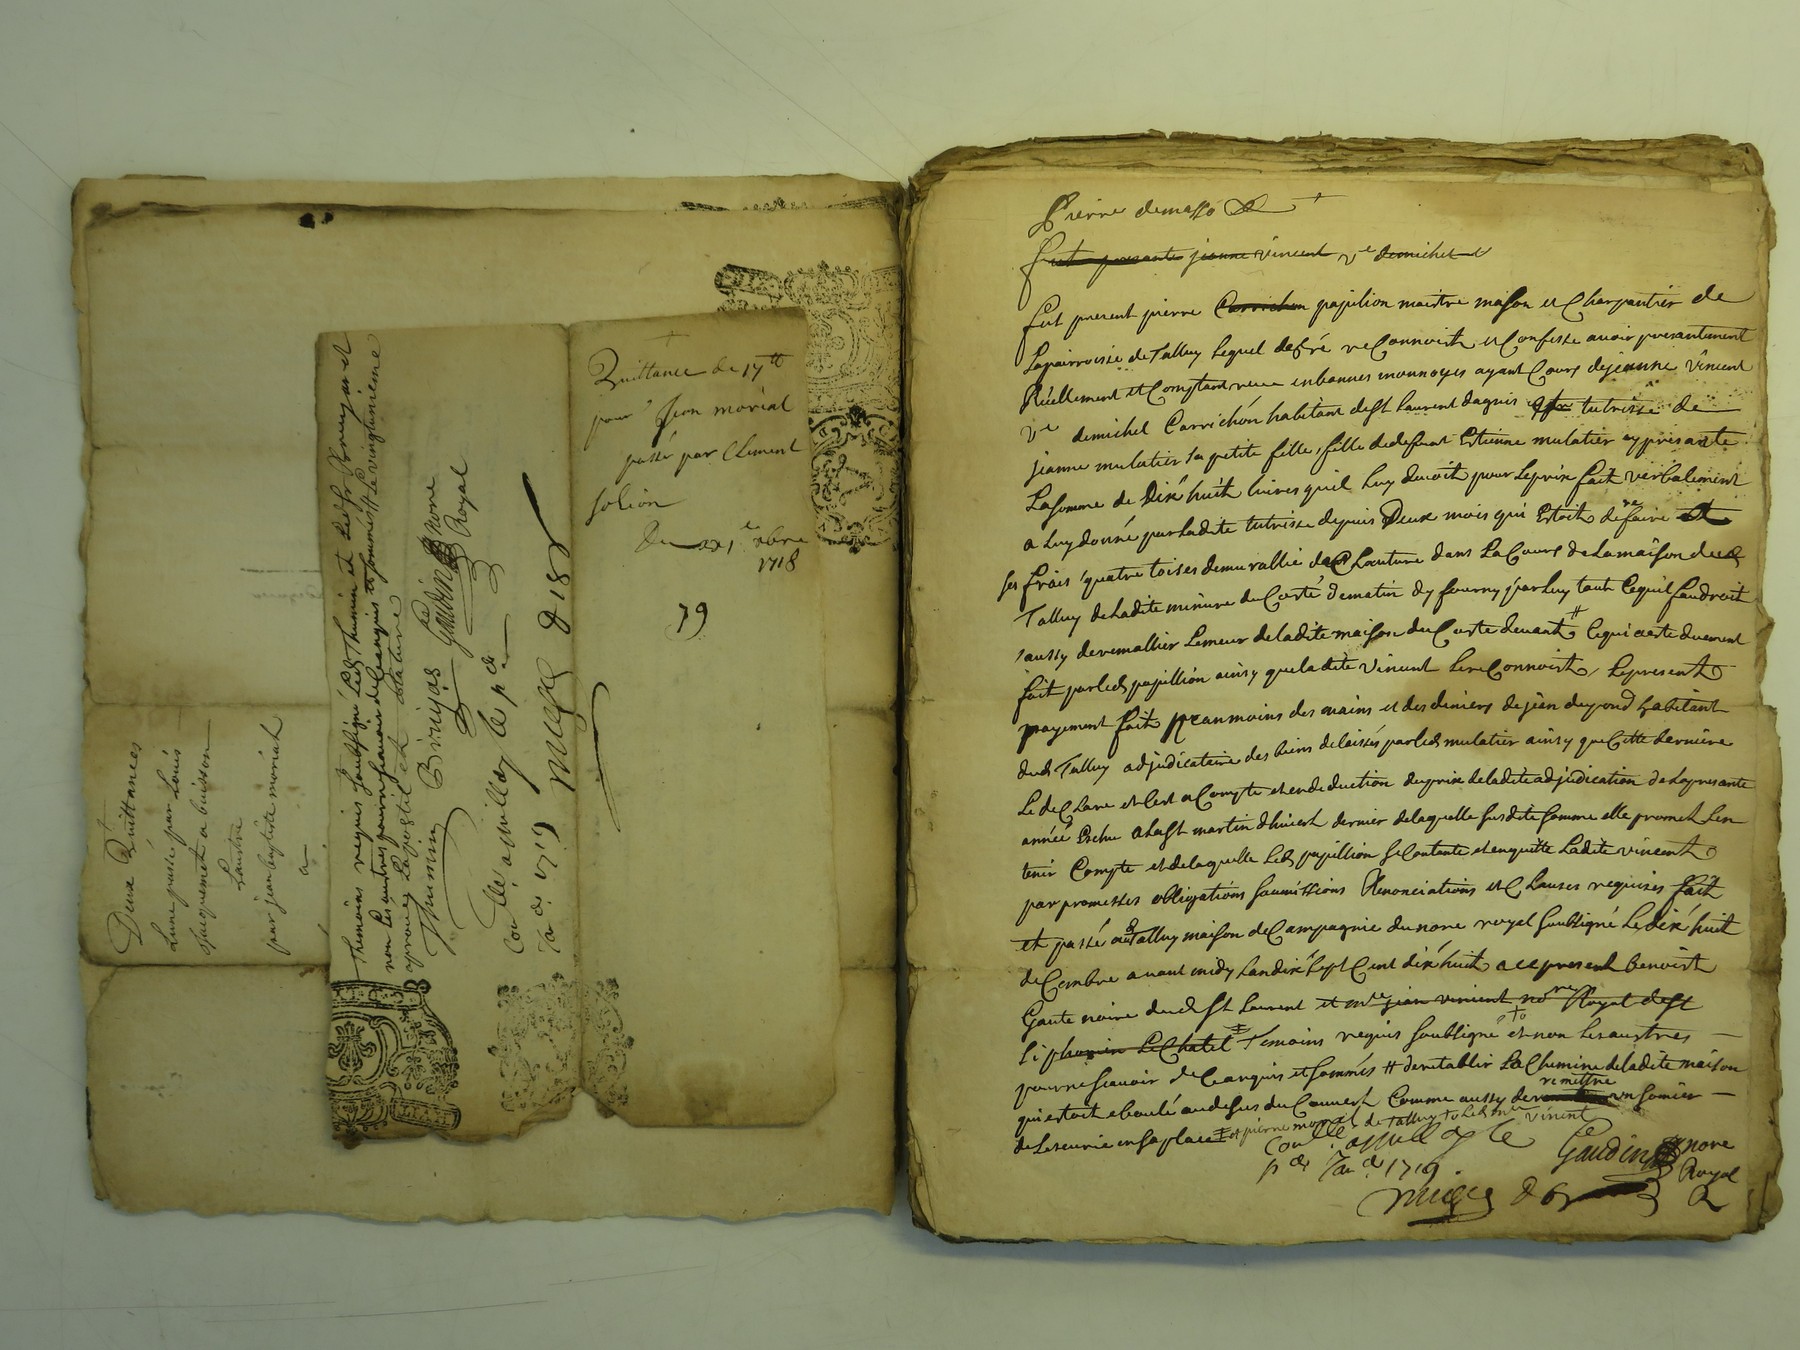 Deux Quittances
Lune passé par Louis
Jacquemet a buisson
Lautre
par jean baptiste moriat
themoins requis soubsigné Led Thimin et
non les autres pour ne scavoir de ce enquis et sommés Le vingtunième
aprouvé Le postil et rature
Thimin Brivjas Gaudin nore Royal
Con lle a millery le p de
Ja. de 1719
Quittance de 17tt
pour Jean moriat
passé par Clement
solion
Du xx1e xbre
1718
79
Pierre demassö
fut presante jeanne vincent ve demichel
fut present pierre Carrichon papilion maistre masson et Charpantier de
Laparroisse de Talluy Lequel de gré reConnoist et Confesse avoir presantement
Réellement et Comptant receu en bonnes monnoyes ayant Cours de jeanne Vincent
ve demichel Carrichon habitant de st Laurent dagnis tutrisse de
jeanne mulatier sa petite fille, fille de defunt Estienne mulatier cy presante
La somme de Dix huit livres quil Luy devoit pour Leprix fait verbalement
a Luy donné par Ladite tutrisse depuis Deux mois qui Estoit de faire
ses frais quatre toises de muraillie de Cloouture dans La Cour de La maison dud
Talluy de Ladite mineure du Costé de matin dy fourny par Luy tout Cequil faudroit
aussy de remallier Lemeur de ladite maison du Coste devant # Cequi a este duement
fait par led papillion ainsy que ladite Vincent Le reConnoist, Lepresent
payement fait Neanmoins des mains et des deniers de jean deyond habitant
dud Talluy adjudicataire des biens delaissés par led mulatier ainsy que Cette derniere
Le deClare et Cest a Compte et en deduction du prix de ladite adjudication de Lapresante
année Escheu a La st martin dhivert dernier de laquelle susdite somme elle promet Len
tenir Compte et de laquelle Led papillion se Contante et enquitte Ladite vincent
par promesses obligations soumissions Renonciations et Clauses requises fait
et passé au Talluy maison de Campagne du nore royal soubsigné Le dix huit
deCembre avant midy Lan dix sept Cent dix huit a ce present benoist
Gaute noire dud st Laurent et me jean vincent nore Royal de st
Simphorien LeChatel ‡ Temoins requis soubsigné et non Les autres
pour ne scavoir de Ce anquis et sommés # de retablir La Chemine de ladite maison
qui estoit eboulé au dessus du Couvert Comme aussy de remettre un somier
de Lescurie en sa place ‡ et pierre moriat de Talluy
Con lle a millery le
p de Ja. de 1719.
Gaudin nore
Royal